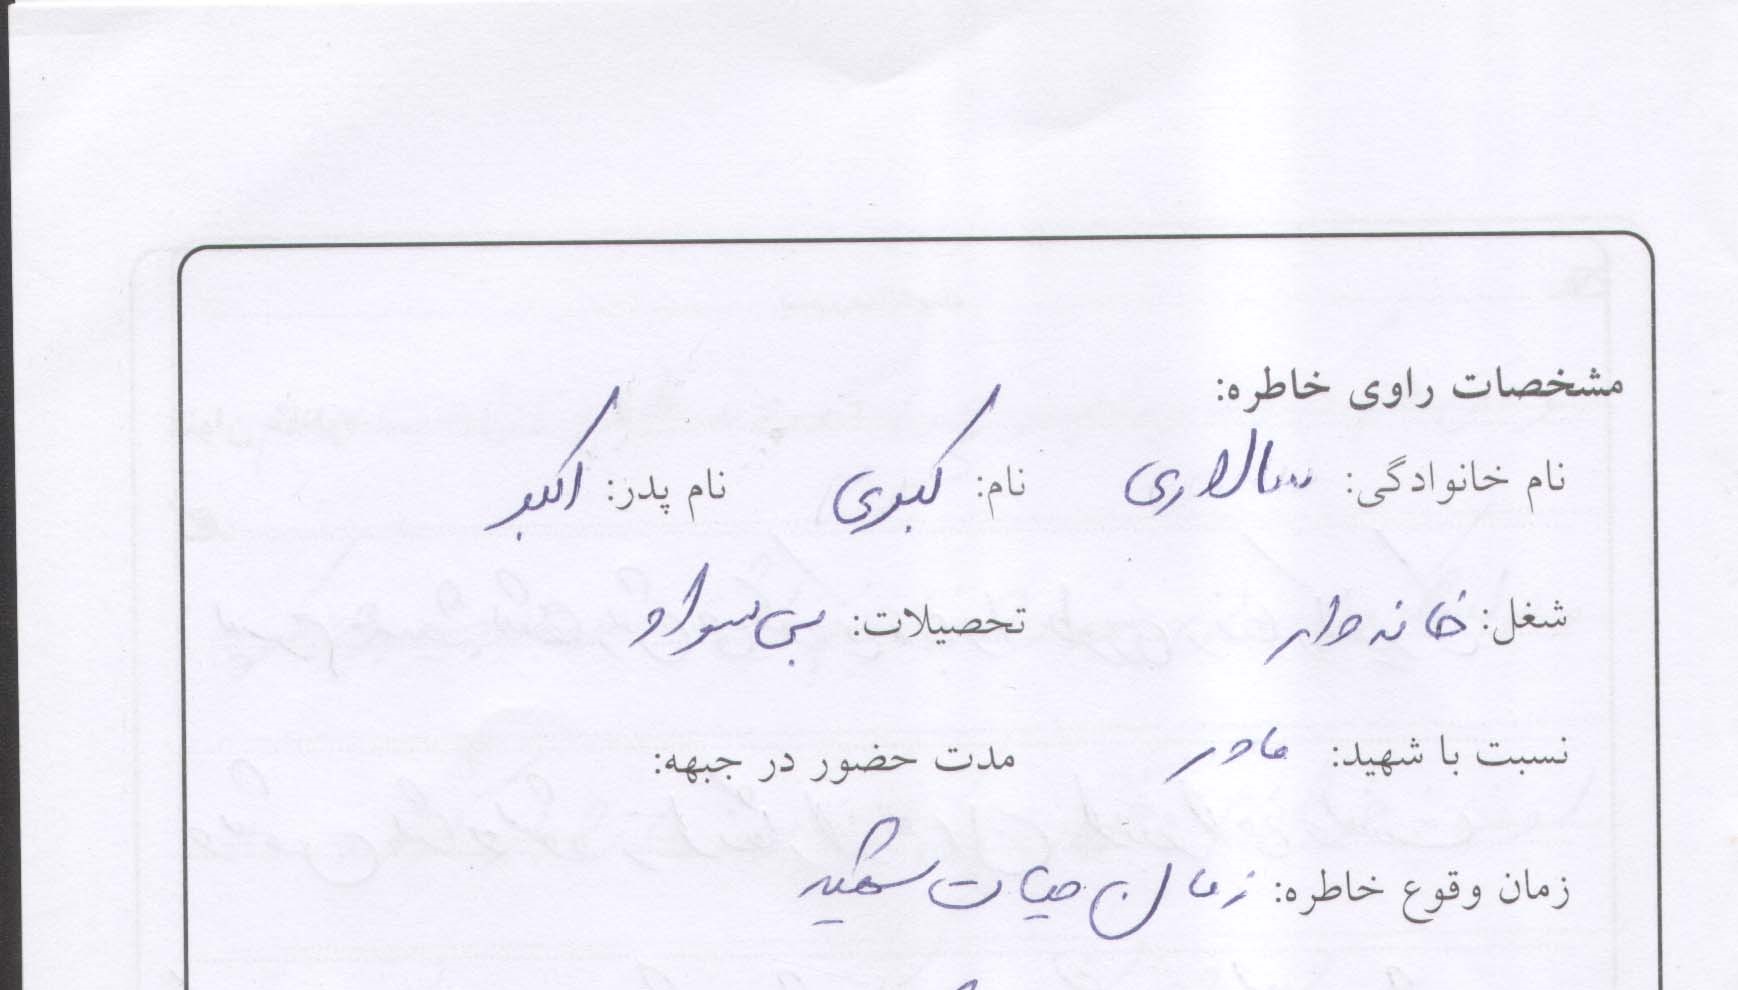 مشخصات راوی خاطره:
نام خانوادگی: سالاری نام: کبری نام پدر: اکبر
شغل: خانه دار تحصیلات: بی سواد
نسبت با شهید: مادر مدت حضور در جبهه:
زمان وقوع خاطره: زمان حیات شهید